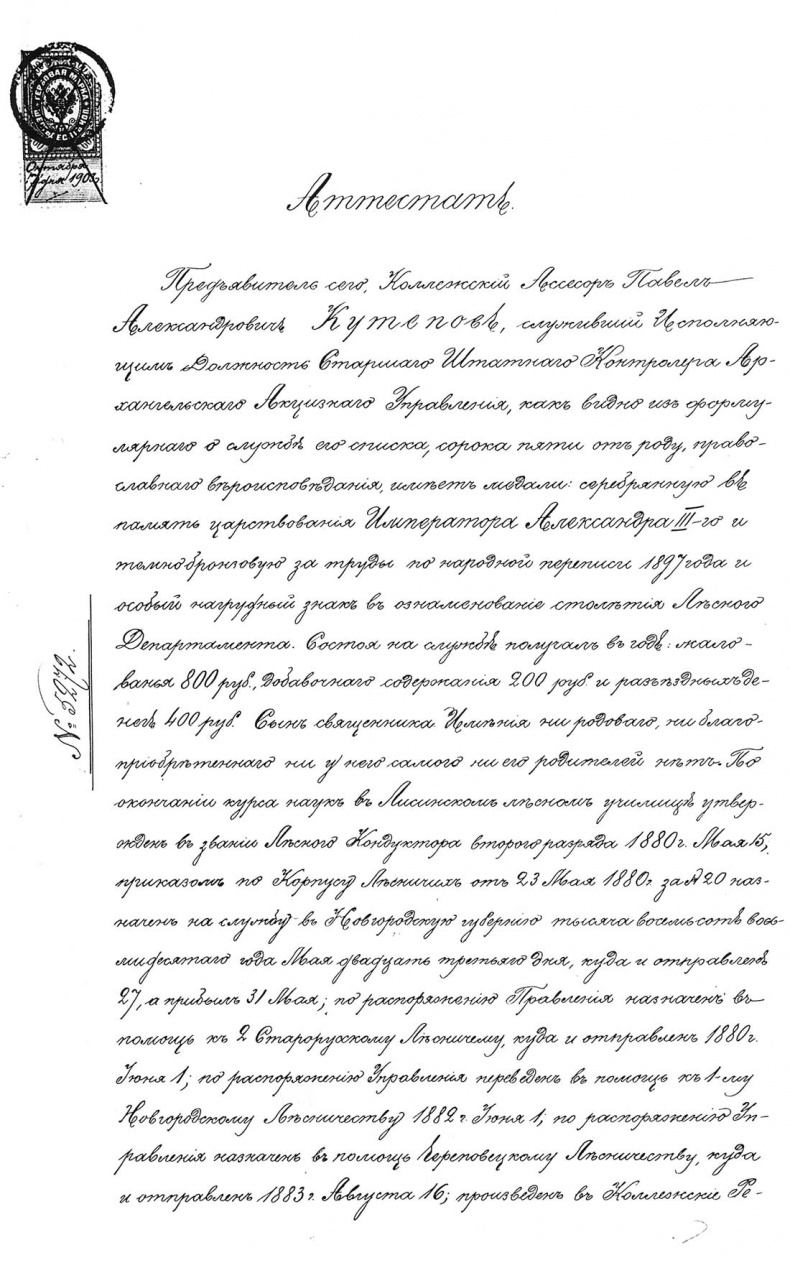 ГЕРБОВАЯ МАРКА
Октября
7 дня 1903
Аттестатъ.
Предъявитель сего, Коллежскій Ассесоръ Павелъ
Александровичъ Кутеповъ, служившій Исполняю-
щимъ Должность Старшаго Штатнаго Контролера Ар-
хангельскаго Акцизнаго Управленія, какъ видно изъ форму-
лярнаго о службѣ его списка, сорока пяти отъ роду, право-
славнаго вѣроисповѣданія, имѣетъ медали: серебрянную въ
память царствованія Императора Александра III-го и
темнобронзовую за труды по народной переписи 1897 года и
особый нагрудный знакъ въ ознаменованіе столѣтія Лѣсного
Департамента. Состоя на службѣ получалъ въ годъ: жало-
ванья 800 руб., добавочнаго содержанія 200 руб. и разъѣздныхъ де-
негъ 400 руб. Сынъ священника Имѣнія ни родоваго, ни благо-
пріобрѣтеннаго ни у него самого ни его родителей нѣтъ. По
окончаніи курса наукъ въ Лисинскомъ лѣсномъ училищѣ утвер-
жденъ въ званіи Лѣсного Кондуктора второго разряда 1880 г. Мая 15,
приказомъ по Корпусу Лѣсничихъ отъ 23 Мая 1880 г. за № 20 наз-
наченъ на службу въ Новгородскую губернію тысяча восемьсотъ вось-
мидесятаго года Мая двадцать третьяго дня, куда и отправленъ
27, а прибылъ 31 Мая; по распоряженію Правленія назначенъ въ
помощь къ 2 Старорусскому Лѣсничему, куда и отправлен 1880 г.
Іюня 1; по распоряженію Управленія переведенъ въ помощь къ 1-му
Новгородскому Лѣсничеству 1882 г. Іюня 1, по распоряженію Уп-
равленія назначенъ въ помощь Череповецкому Лѣсничеству, куда
и отправленъ 1883 г. Августа 16; произведенъ въ Коллежскіе Ре-
№